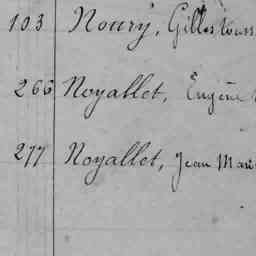 103 Noury, Gilles
266 Noyallet, Eugène
277 Noyallet, Jean Marie